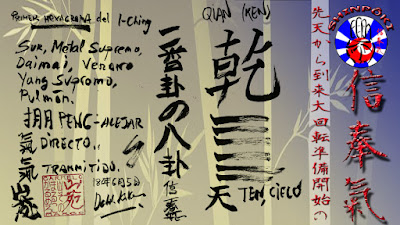 PRIMER HEXAGRAMA del I-Ching
Sur, Metal Supremo,
Daimai, Verano
Yang Supremo,
Pulmón.
掤 PENG-ALEJAR
氣 DIRECTO..
氣 TRANMITIDO.
18年6月5日
一番卦の八卦
信奉氣
QIAN (KEN)
乾
☰
天 TEN, CIELO
先天から到来大回転準備開始の
SHINPOKI
信奉氣